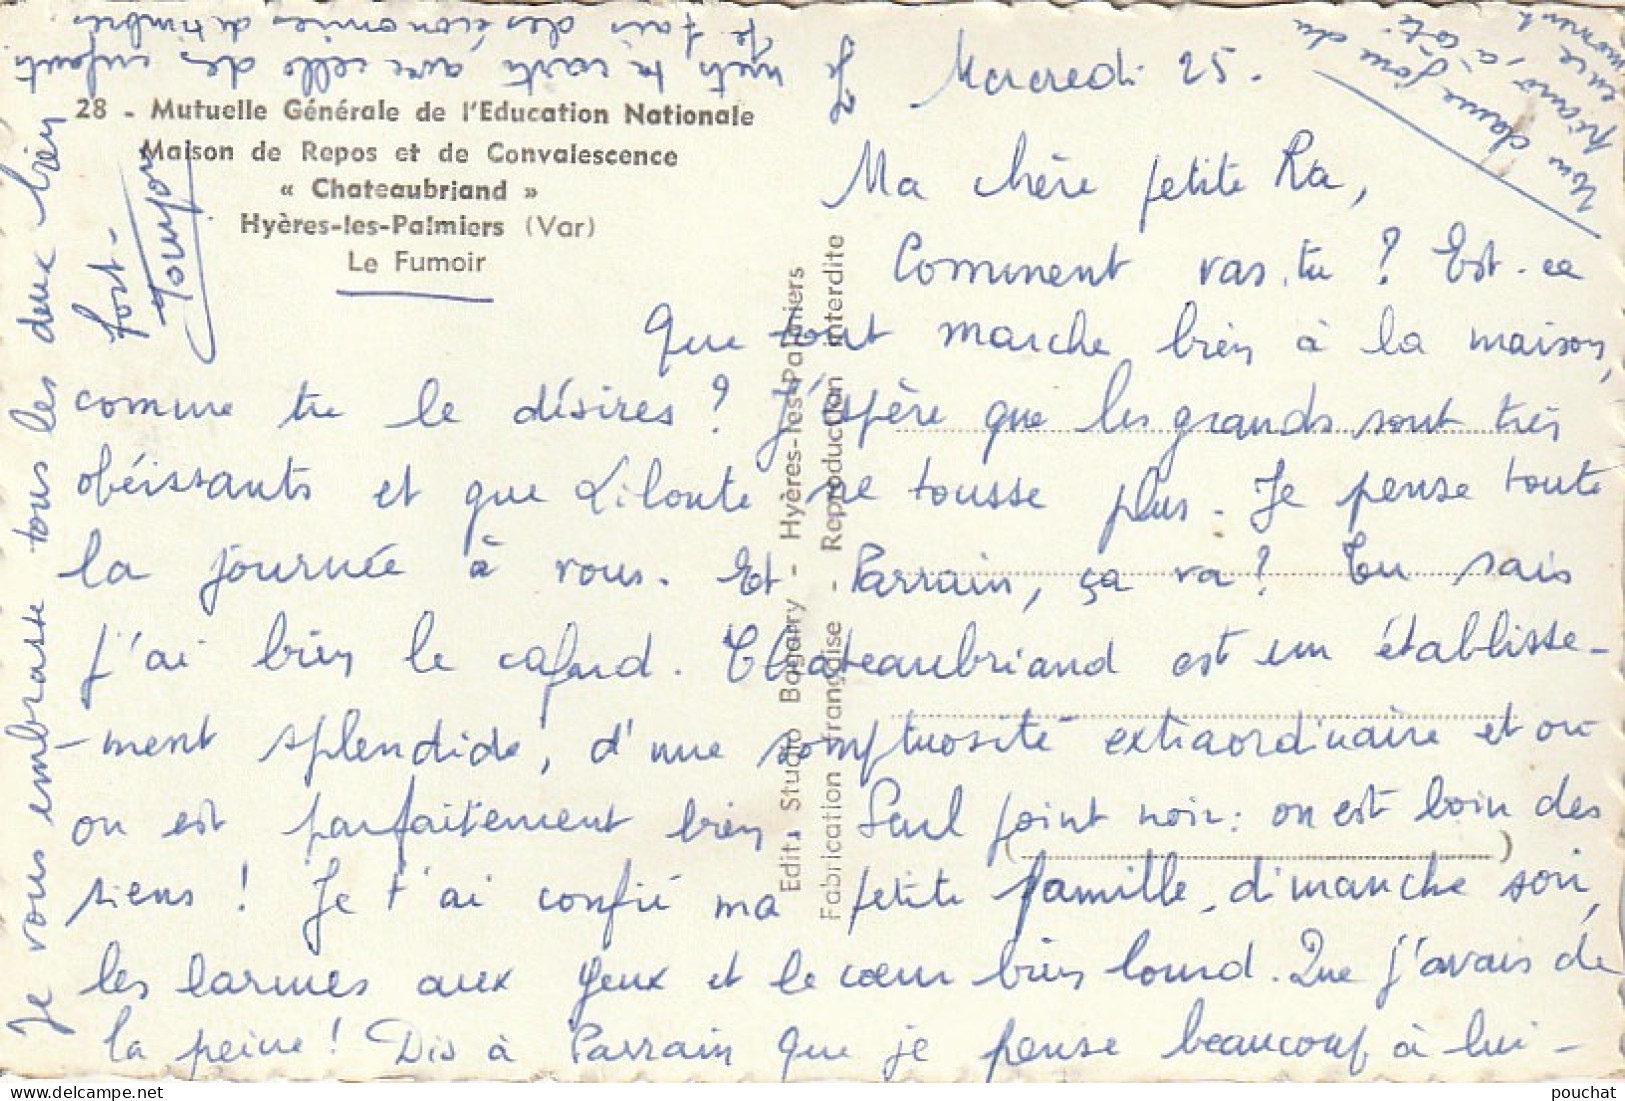 28 - Mutuelle Générale de l'Education Nationale
Maison de Repos et de Convalescence
« Chateaubriand »
Hyères-les-Palmiers (Var)
Le Fumoir
Edit. Studio Bagarry - Hyères-les-Palmiers
Fabrication Française - Reproduction interdite
Mercredi 25.
Ma chère petite Ra,
Comment vas-tu ? Est-ce
que tout marche bien à la maison,
comme tu le désires ? J'espère que les grands sont très
obéissants et que Liloute ne tousse plus. Je pense toute
la journée à vous. Et Parrain, ça va ? Tu sais
j'ai bien le cafard. Chateaubriand est un établisse-
-ment splendide, d'une somptuosité extraordinaire et où
on est parfaitement bien Seul point noir : on est loin des
siens ! Je t'ai confié ma petite famille, dimanche soir,
les larmes aux yeux et le cœur bien lourd. Que j'avais de
la peine ! Dis à Parrain que je pense beaucoup à lui -
Je vous embrasse tous les deux bien
fort -
Je mets ta carte avec celle des enfants
je fais des économies de timbres
Une dame joue du
piano, à côté
en ce
moment
pouchat